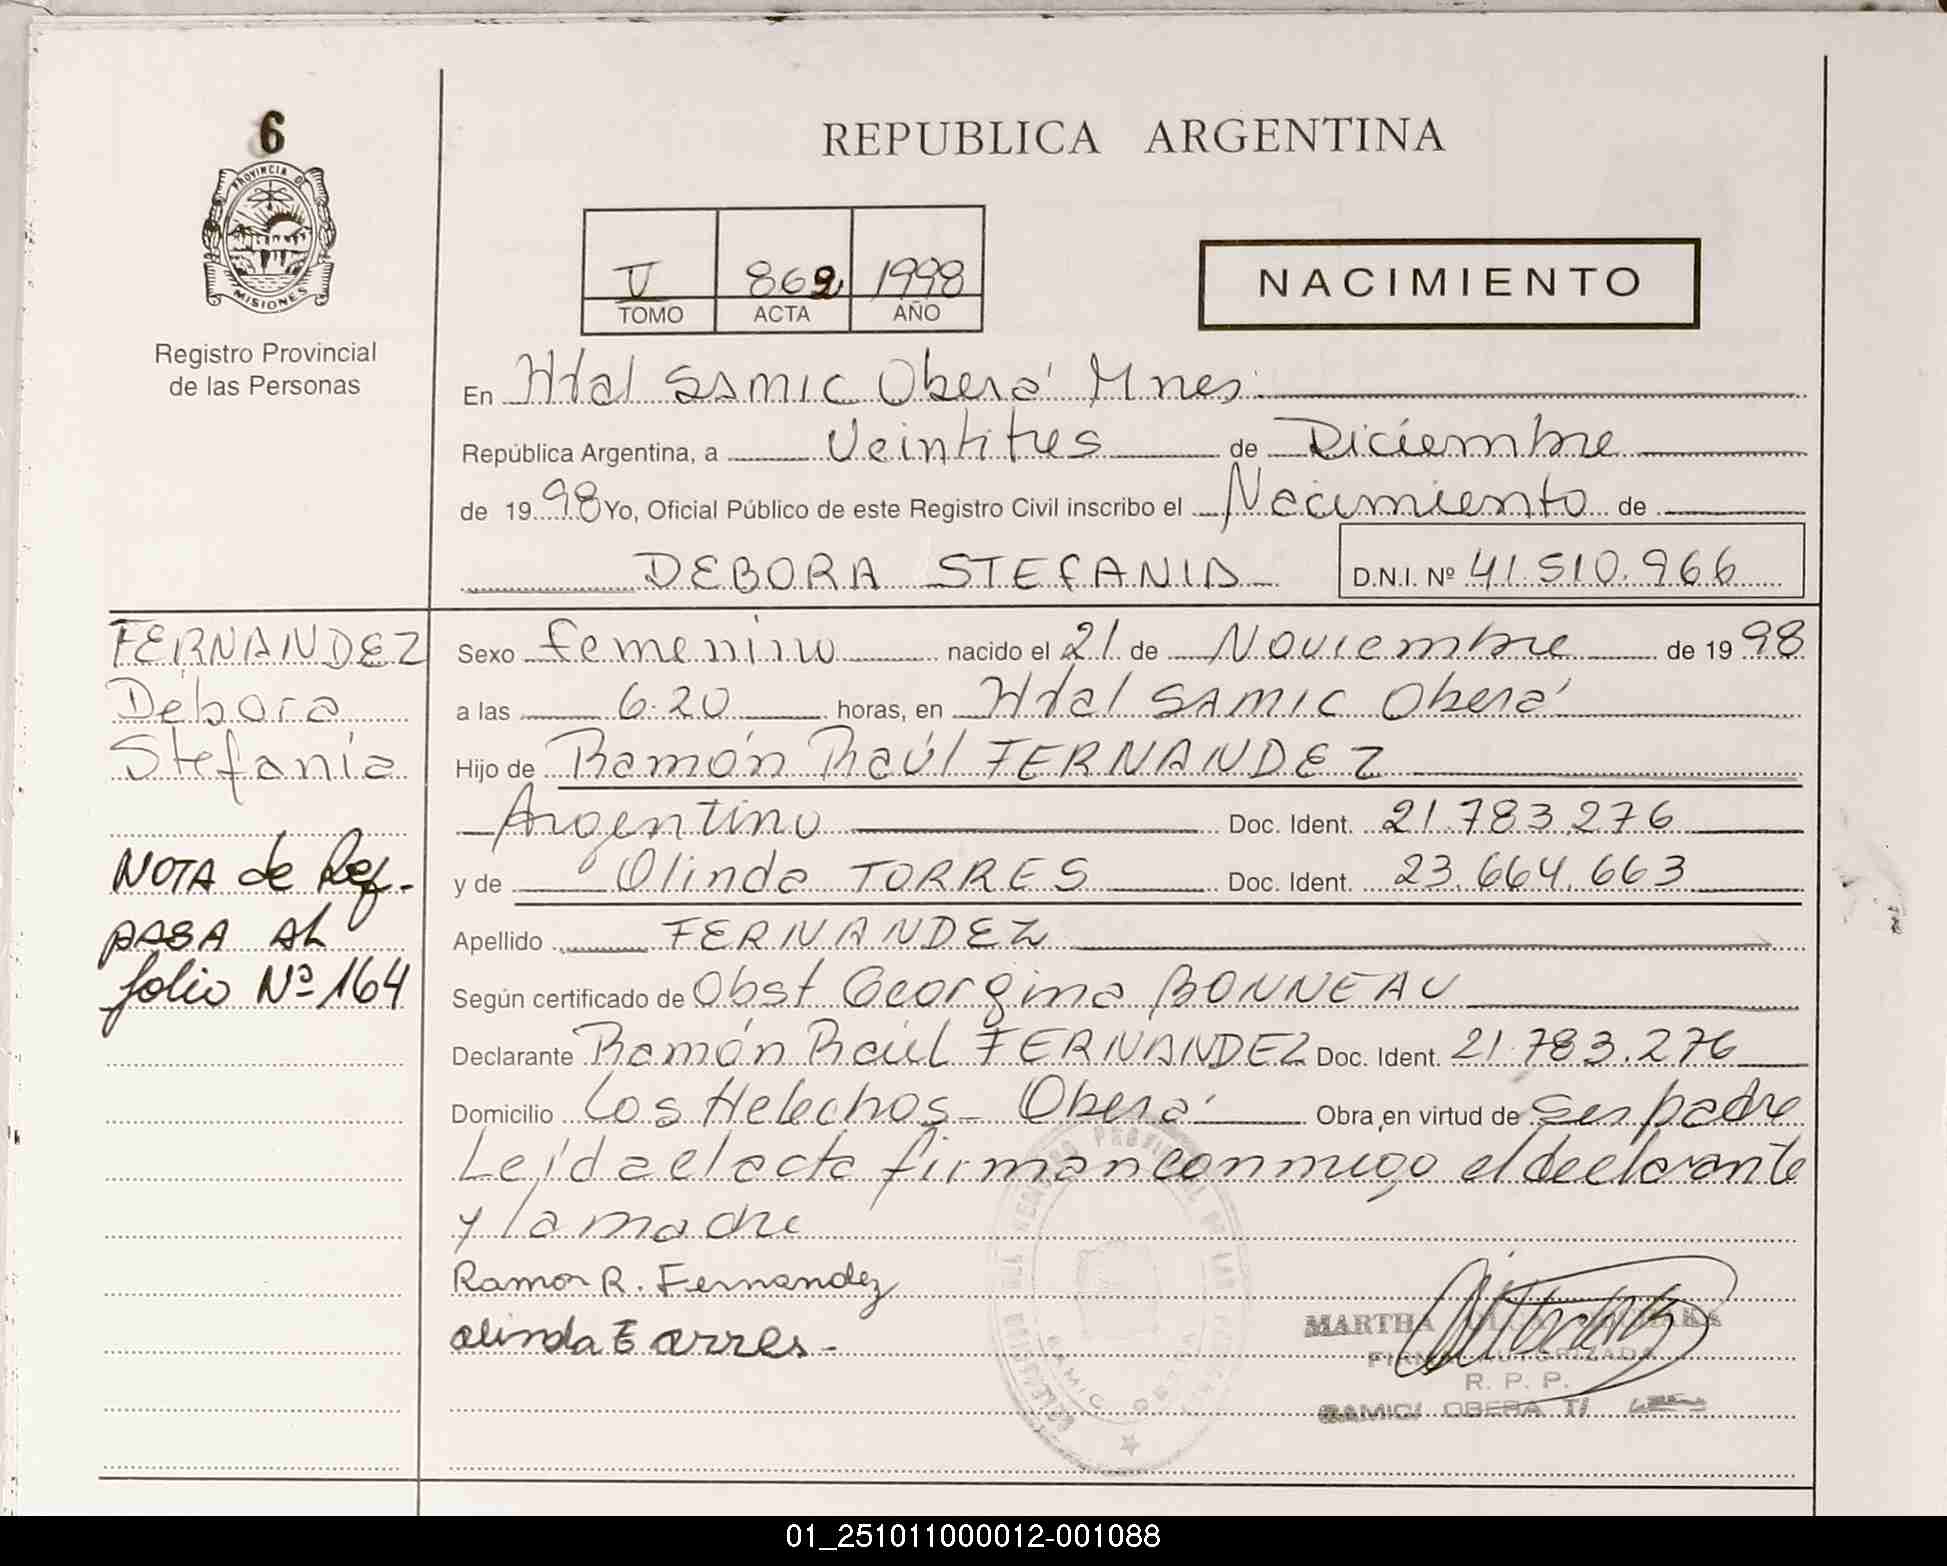 6
PROVINCIA DE
MISIONES
Registro Provincial
de las Personas
REPUBLICA ARGENTINA
V 862 1998
TOMO ACTA AÑO
NACIMIENTO
En Htal SAMIC Oberá Mnes.
República Argentina, a Veintitres de Diciembre
de 1998 Yo, Oficial Público de este Registro Civil inscribo el Nacimiento de
DEBORA STEFANIA D.N.I. Nº 41.510.966
FERNANDEZ
Débora
Stefanía
NOTA de Ref.
PASA AL
folio Nº 164
Sexo femenino nacido el 21 de Noviembre de 1998
a las 6.20 horas, en Htal SAMIC Oberá
Hijo de Ramón Raúl FERNANDEZ
Argentino Doc. Ident. 21.783.276
y de Olinda TORRES Doc. Ident. 23.664.663
Apellido FERNANDEZ
Según certificado de Obst Georgina BONNEAU
Declarante Ramón Raúl FERNANDEZ Doc. Ident. 21.783.276
Domicilio Los Helechos - Oberá Obra en virtud de ser padre
Leída el acta firman conmigo el declarante
y la madre
Ramon R. Fernandez
olinda torres-
MARTHA
FIRMA AUTORIZADA
R. P. P.
SAMIC OBERA
01_251011000012-001088